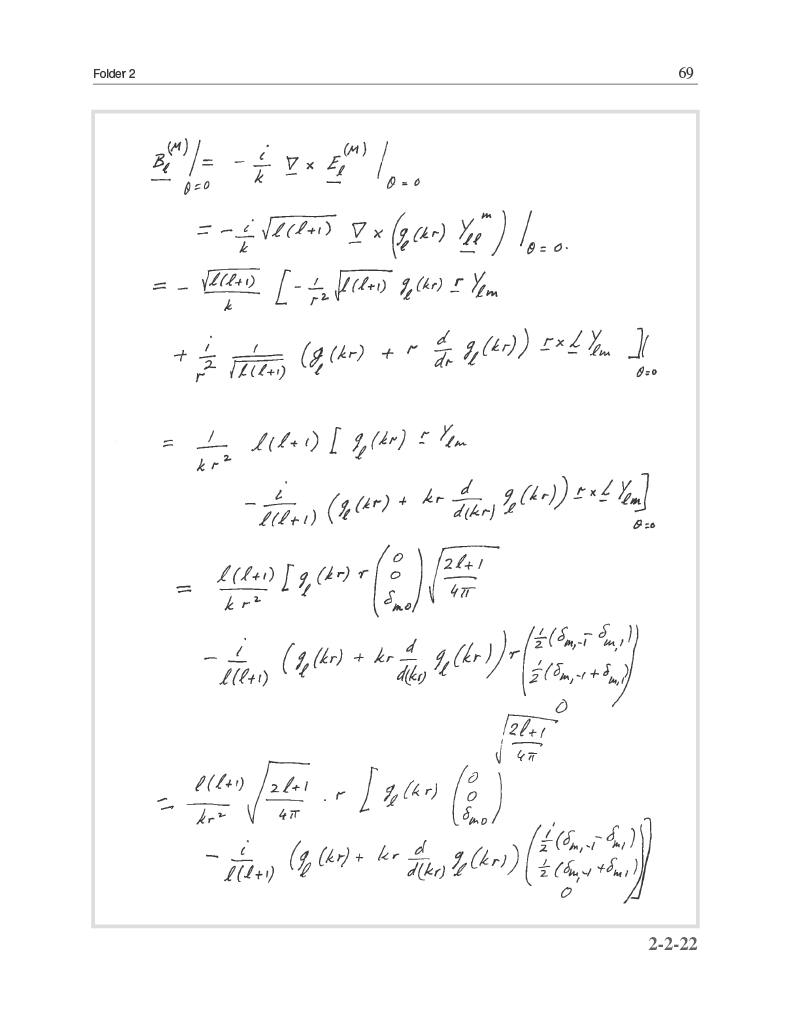 Folder 2 69
B_ℓ^(M) |_θ=0 = - i/k ∇ × E_ℓ^(M) |_θ=0
= - i/k √(ℓ(ℓ+1)) ∇ × (g_ℓ(kr) Y_ℓℓ^m) |_θ=0.
= - √(ℓ(ℓ+1))/k [ - 1/r² √(ℓ(ℓ+1)) g_ℓ(kr) r Y_ℓm
+ i/r² 1/√(ℓ(ℓ+1)) (g_ℓ(kr) + r d/dr g_ℓ(kr)) r × L Y_ℓm ]|_θ=0
= 1/(kr²) ℓ(ℓ+1) [ g_ℓ(kr) r Y_ℓm
- i/(ℓ(ℓ+1)) (g_ℓ(kr) + kr d/d(kr) g_ℓ(kr)) r × L Y_ℓm ]_θ=0
= ℓ(ℓ+1)/(kr²) [ g_ℓ(kr) r (0 0 δ_m0) √((2ℓ+1)/4π)
- i/(ℓ(ℓ+1)) (g_ℓ(kr) + kr d/d(kr) g_ℓ(kr)) r (i/2(δ_m,-1 - δ_m,1) 1/2(δ_m,-1 + δ_m,1) 0)
√((2ℓ+1)/4π)
= ℓ(ℓ+1)/(kr²) √((2ℓ+1)/4π) . r [ g_ℓ(kr) (0 0 δ_m0)
- i/(ℓ(ℓ+1)) (g_ℓ(kr) + kr d/d(kr) g_ℓ(kr)) (i/2(δ_m,-1 - δ_m1) 1/2(δ_m,-1 + δ_m1) 0) ]
2-2-22